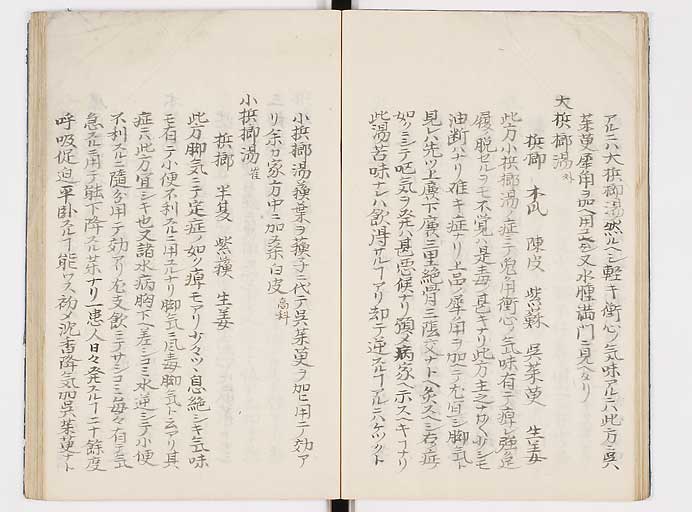 アルニハ大檳榔湯然ルヘシ軽キ衝心ノ気味アルニハ此方ニ呉
茱萸犀角ヲ加ヘ用ユ 又水腫満門ニ見ヘタリ
大檳榔湯
檳榔 木瓜 陳皮 紫蘇 呉茱萸 生姜
此方小檳榔湯ノ症ニテ兎角衝心ノ気味有テ痺レ強ク足
覆ノ脱セルヲモ不覚ハ是毒ノ甚キナリ此方主之ナサク少シモ
油断ハナリ難キ症ナリ上品ノ犀角ヲ加ヘテ宜シ脚気ト
見レハ先ツ上廉下廉三里絶骨三陰交ナトヘ灸スヘシ右ノ症ノ
如クシテ吧気ヲ発ハ甚悪候ナリ 病家ヘ示スヘキナリ
此湯苦味ナレハ飲得サルアリ却テ逆スルアルニハ
小檳榔湯蘓葉ヲ蘓子ニ代テ呉茱萸ヲ加ヘ用テ効ア
リ余カ家方中ニ加桑白皮
小檳榔湯
檳榔 半夏 紫蘓 生姜
此方脚気ニテ定症ノ如ク痺モアリ少々ツヽ息絶シキ気味
モ有テ小便不利スルニ用ユルナリ脚気ニ風毒脚気ト云アリ其
症ハ此方宜シキ也又諸水病胸下ヘ差シコミ水逆シテ小便
不利スルニ随分用テ効アリ左支飲ニテサシコミ毎々有テ気
急スルニ用テ能下降スル茱ナリ一患人日々発スル十余度
呼吸促迫平臥スル能ワス初メ沈香降気加呉茱萸ナト